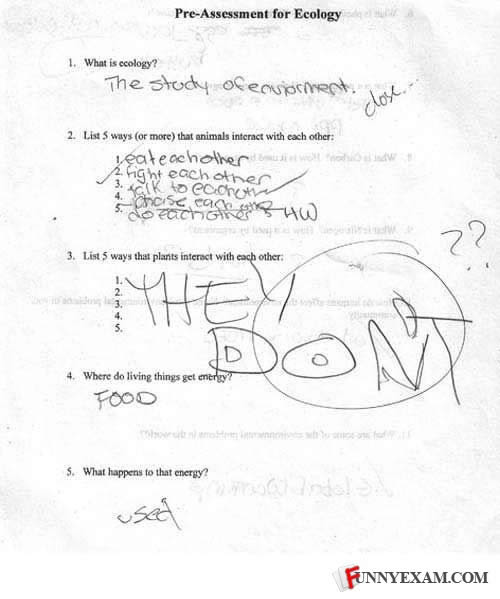 Pre-Assessment for Ecology
1. What is ecology?
The study of enviorment.
close...
2. List 5 ways (or more) that animals interact with each other:
1. eat eachother
2. fight each other
3. talk to eachother
4. chase each other
5. do eachother
HW
3. List 5 ways that plants interact with each other:
??
1.
2.
3.
4.
5.
THEY
DON'T
4. Where do living things get energy?
FOOD
5. What happens to that energy?
used
FUNNYEXAM.COM